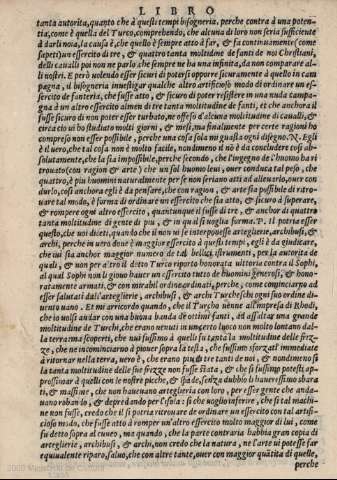 LIBRO
tanta autorita, quanto che à questi tempi bisogneria, perche contra à una poten-
tia, come è quella del Turco, comprehendo, che alcuna di loro non seria sufficiente
à darli noia, la causa è, che quello è sempre atto à far, & fa continuamente (come
sapeti) un essercito di tre, & quattro tanta moltitudine de fanti de noi Christiani,
delli cavalli poi non ne parlo, che sempre ne ha una infinita, da non comparare al-
li nostri. E però volendo esser sicuri di potersi opporre sicuramente à quello in cam
pagna, il bisogneria investigar qualche altro artificioso modo di ordinare un essér
cito de fanteria, che fusse atto, & sicuro di poter resistere in una nuda campa-
gna à un altro essercito almen di tre tanta moltitudine de fanti, et che anchora il
fusse sicuro di non poter esser turbato, ne offeso d'alcuna moltitudine di cavalli, &
circa cio vi ho studiato molti giorni, & mesi, ma finalmente per certe ragioni ho
compreso non esser possibile, perche una cosa sola mi guasta ogni disegno. N. Egli
è il vero, che tal cosa non è molto facile, nondimeno il nò è da concludere cosi ab-
solutamente, che la sia impossibile, perche secondo, che l'ingegno de l'huomo ha ri
trovato (con ragion & arte) che un sol huomo levi, over conduca tal peso, che
quattro, è piu huomini naturalmente per se non seriano atti ad alienarlo, over con
durlo, cosi anchora egli è da pensare, che con ragion, & arte sia possibile di ritro-
vare tal modo, è forma di ordinare un essercito che sia atto, & sicuro à superare,
& rompere ogni altro essercito, quantunque il fusse di tre, & anchor di quattro
tanta moltitudine di gente di piu, & in qual si voglia forma. P. Il potria esser
questo, che voi diceti, quando che il non vi se interponesse arteglierie, archibusi, &
archi, perche in vero dove è maggior essercito à questi tempi, egli è da giudicare,
che ivi sia anchor maggior numero de tali bellici istrumenti, per la autorita de
quali, & non per altro il detto Turco riportò honorata vittoria contra il Sophi,
al qual Sophi non li giovò haver un essercito tutto de huomini generosi, & hono-
ratamente armati, & con mirabil ordine ordinati, perche, come cominciarno ad
esser salutati dall'arteglierie, archibusi, & archi Turcheschi ogni suo ordine di-
ventò vano. Et mi arricordo quando, che il Turcho venne all'impresa di Rhodi,
che io volsi andar con una buona banda de ottimi fanti, ad assaltar una grande
moltitudine de Turchi, che erano venuti in un certo luoco non molto lontano dal-
la terra ma scoperti, che noi fussimo à quelli fu tanta la moltitudine delle frez-
ze, che ne incominciarono à piover sopra la testa, che fussimo sforzati immediate
à ritornar nella terra, vero è, che erano piu di tre tanti de noi, & nondimeno se
la tanta moltitudine delle sue frezze non fusse stata, & che si fussimo potesti ap-
prossimar à quelli con le nostre picche, & spade, senza dubbio li haveressimo sbara
ti, & massime, che non havevano arteglieria con loro, per esser gente che anda-
vano robando, & depredando per l'Isola: si che voglio inferire, che se tal machi-
ne non fusse, credo che il si potria ritrovare de ordinare un essercito con tal artifi-
cioso modo, che fusse atto à romper un'altro essercito molto maggior di lui, come
fu detto sopra al cuneo, ma quando, che la parte contraria habbia gran copia di
arteglierie, archibusi, & archi, non credo che la natura, ne l'arte vi potesse far
equivalente riparo, salvo, che con altre tante, over con maggior quātita di quelle,
perche